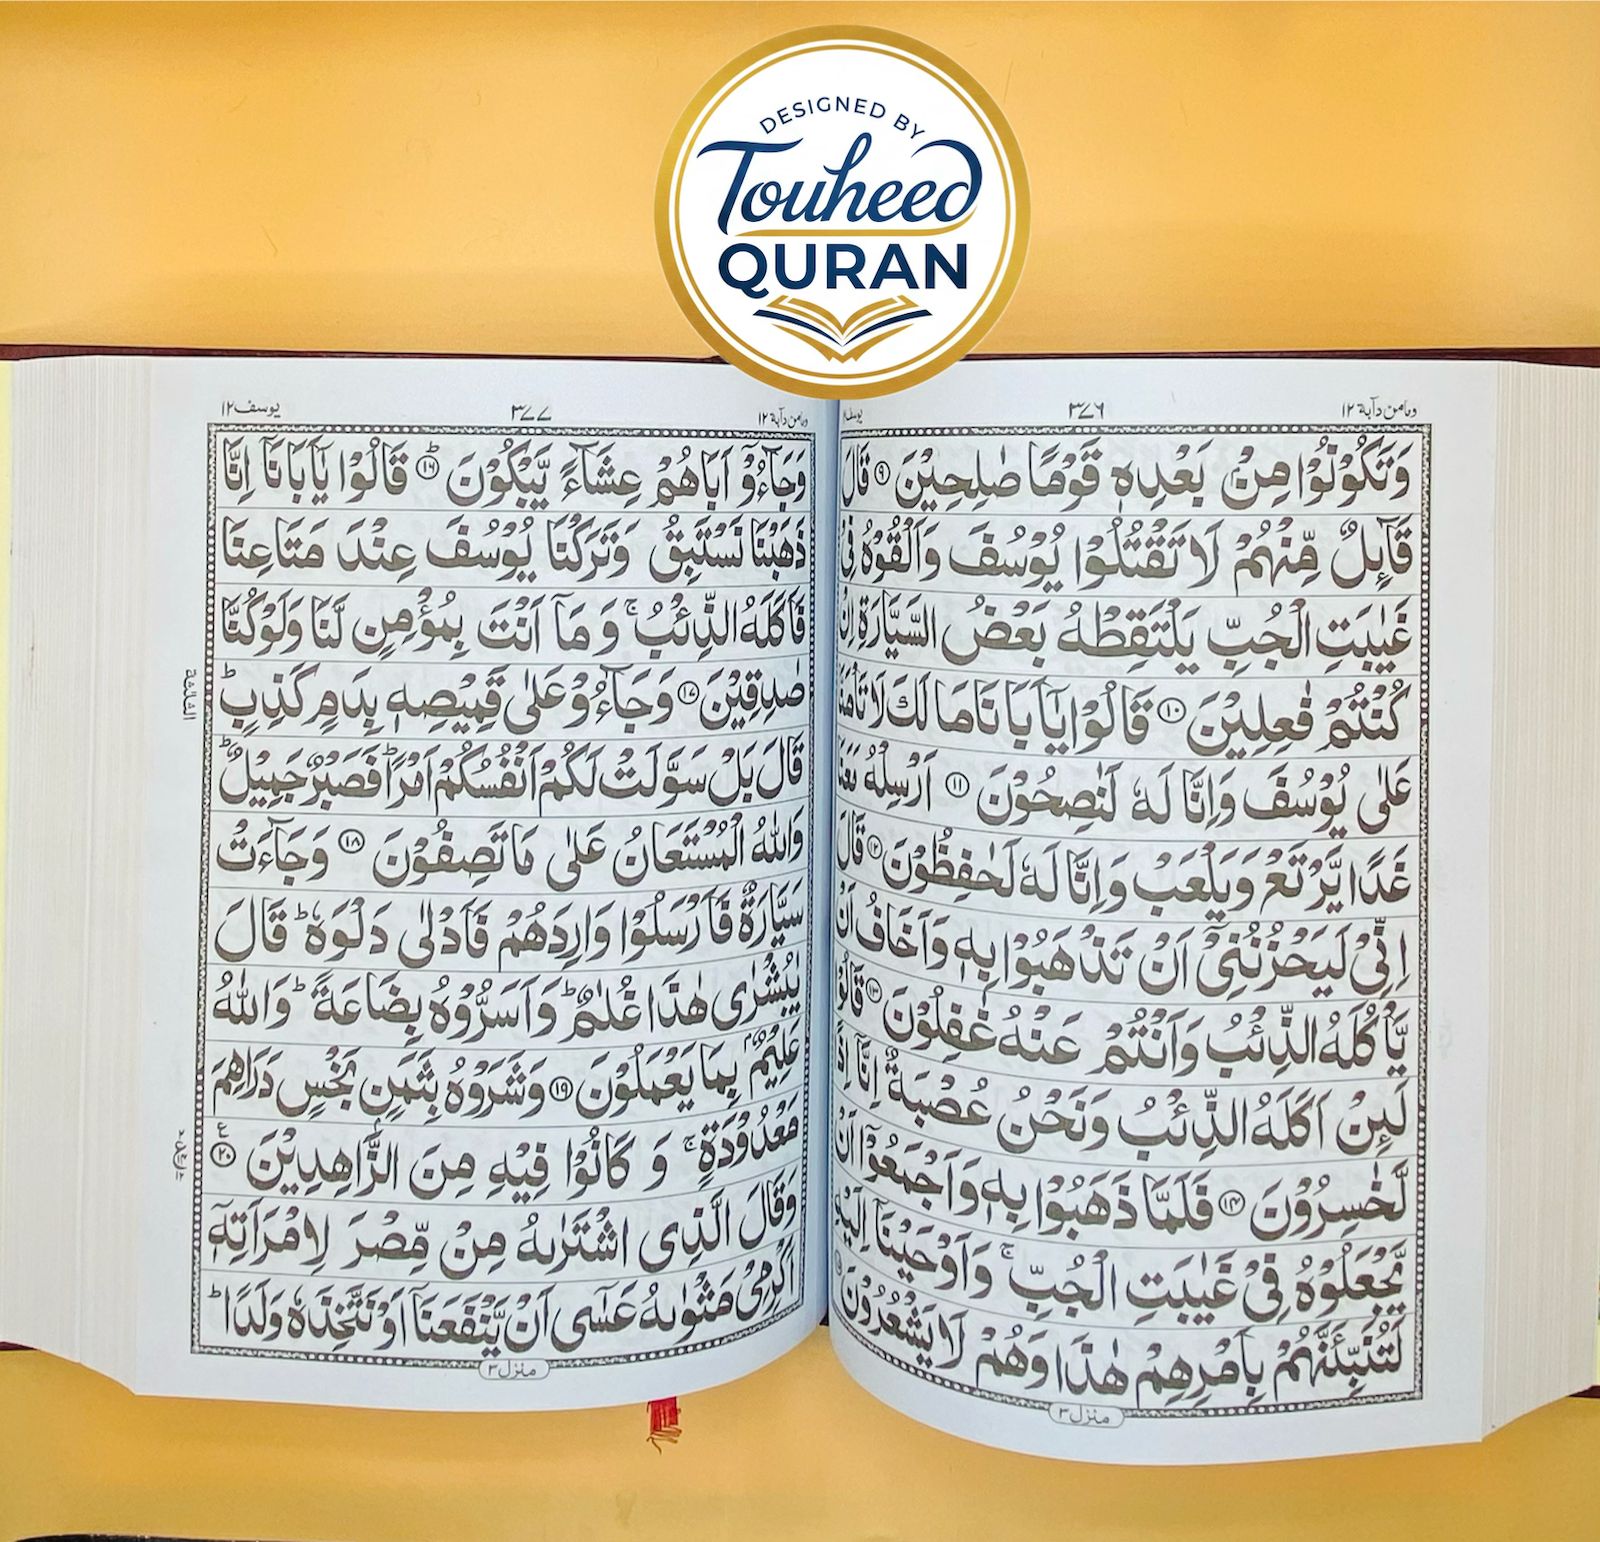 DESIGNED BY
Touheed
QURAN
ومامن دآبة ١٢
٣٧٦
يوسف
وَتَكُوْنُوْا مِنْۢ بَعْدِهٖ قَوْمًا صٰلِحِيْنَ ۹ قَالَ
قَآىِٕلٌ مِّنْهُمْ لَا تَقْتُلُوْا يُوْسُفَ وَاَلْقُوْهُ فِيْ
غَيٰبَتِ الْجُبِّ يَلْتَقِطْهُ بَعْضُ السَّيَّارَةِ اِنْ
كُنْتُمْ فٰعِلِيْنَ ۱۰ قَالُوْا يٰٓاَبَانَا مَا لَكَ لَا تَاْمَنَّا
عَلٰى يُوْسُفَ وَاِنَّا لَهٗ لَنٰصِحُوْنَ ۱۱ اَرْسِلْهُ مَعَنَا
غَدًا يَّرْتَعْ وَيَلْعَبْ وَاِنَّا لَهٗ لَحٰفِظُوْنَ ۱۲ قَالَ
اِنِّيْ لَيَحْزُنُنِيْٓ اَنْ تَذْهَبُوْا بِهٖ وَاَخَافُ اَنْ
يَّاْكُلَهُ الذِّئْبُ وَاَنْتُمْ عَنْهُ غٰفِلُوْنَ ۱۳ قَالُوْا
لَىِٕنْ اَكَلَهُ الذِّئْبُ وَنَحْنُ عُصْبَةٌ اِنَّآ اِذًا
لَّخٰسِرُوْنَ ۱۴ فَلَمَّا ذَهَبُوْا بِهٖ وَاَجْمَعُوْٓا اَنْ
يَّجْعَلُوْهُ فِيْ غَيٰبَتِ الْجُبِّ ۚ وَاَوْحَيْنَآ اِلَيْهِ
لَتُنَبِّئَنَّهُمْ بِاَمْرِهِمْ هٰذَا وَهُمْ لَا يَشْعُرُوْنَ
منزل ٣
ومامن دآبة ١٢
٣٧٧
يوسف ١٢
وَجَآءُوْٓ اَبَاهُمْ عِشَآءً يَّبْكُوْنَ ۱۶ ؕ قَالُوْا يٰٓاَبَانَآ اِنَّا
ذَهَبْنَا نَسْتَبِقُ وَتَرَكْنَا يُوْسُفَ عِنْدَ مَتَاعِنَا
فَاَكَلَهُ الذِّئْبُ ۚ وَمَآ اَنْتَ بِمُؤْمِنٍ لَّنَا وَلَوْ كُنَّا
صٰدِقِيْنَ ۱۷ وَجَآءُوْ عَلٰى قَمِيْصِهٖ بِدَمٍ كَذِبٍ ؕ
قَالَ بَلْ سَوَّلَتْ لَكُمْ اَنْفُسُكُمْ اَمْرًا ؕ فَصَبْرٌ جَمِيْلٌ ؕ
وَاللّٰهُ الْمُسْتَعَانُ عَلٰى مَا تَصِفُوْنَ ۱۸ وَجَآءَتْ
سَيَّارَةٌ فَاَرْسَلُوْا وَارِدَهُمْ فَاَدْلٰى دَلْوَهٗ ؕ قَالَ
يٰبُشْرٰى هٰذَا غُلٰمٌ ؕ وَاَسَرُّوْهُ بِضَاعَةً ؕ وَاللّٰهُ
عَلِيْمٌۢ بِمَا يَعْمَلُوْنَ ۱۹ وَشَرَوْهُ بِثَمَنٍۭ بَخْسٍ دَرَاهِمَ
مَعْدُوْدَةٍ ۚ وَكَانُوْا فِيْهِ مِنَ الزَّاهِدِيْنَ ۲۰
وَقَالَ الَّذِى اشْتَرٰىهُ مِنْ مِّصْرَ لِامْرَاَتِهٖٓ
اَكْرِمِيْ مَثْوٰىهُ عَسٰٓى اَنْ يَّنْفَعَنَآ اَوْ نَتَّخِذَهٗ وَلَدًا ؕ
منزل ٣
الثلثة